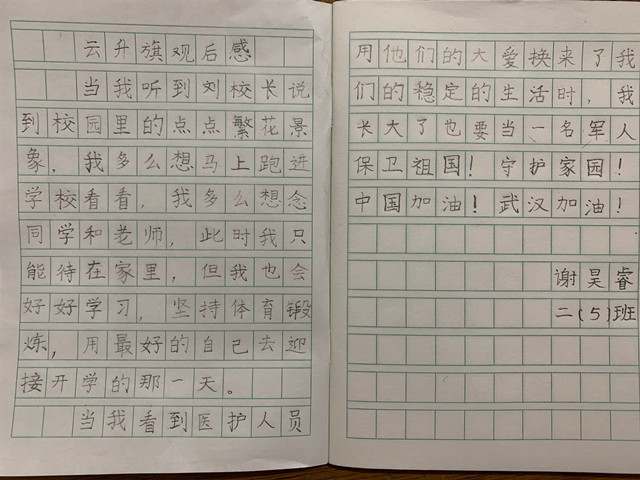 云升旗观后感
当我听到刘校长说
到校园里的点点繁花景
象，我多么想马上跑进
学校看看，我多么想念
同学和老师，此时我只
能待在家里，但我也会
好好学习，坚持体育锻
炼，用最好的自己去迎
接开学的那一天。
当我看到医护人员
用他们的大爱换来了我
们的稳定的生活时，我
长大了也要当一名军人
保卫祖国！守护家园！
中国加油！武汉加油！
谢昊睿
二(5)班